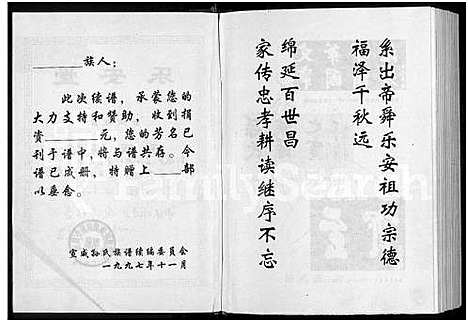 ______族人：
此次续谱，承蒙您的
大力支持和赞助，收到捐
资______元，您的芳名已
刊于谱中，将与谱共存。今
谱已成册，特赠上____部
以垂念。
宣成孙氏族谱续编委员会
一九九七年十一月
系出帝舜乐安祖功宗德
福泽千秋远
绵延百世昌
家传忠孝耕读继序不忘
FamilySearch